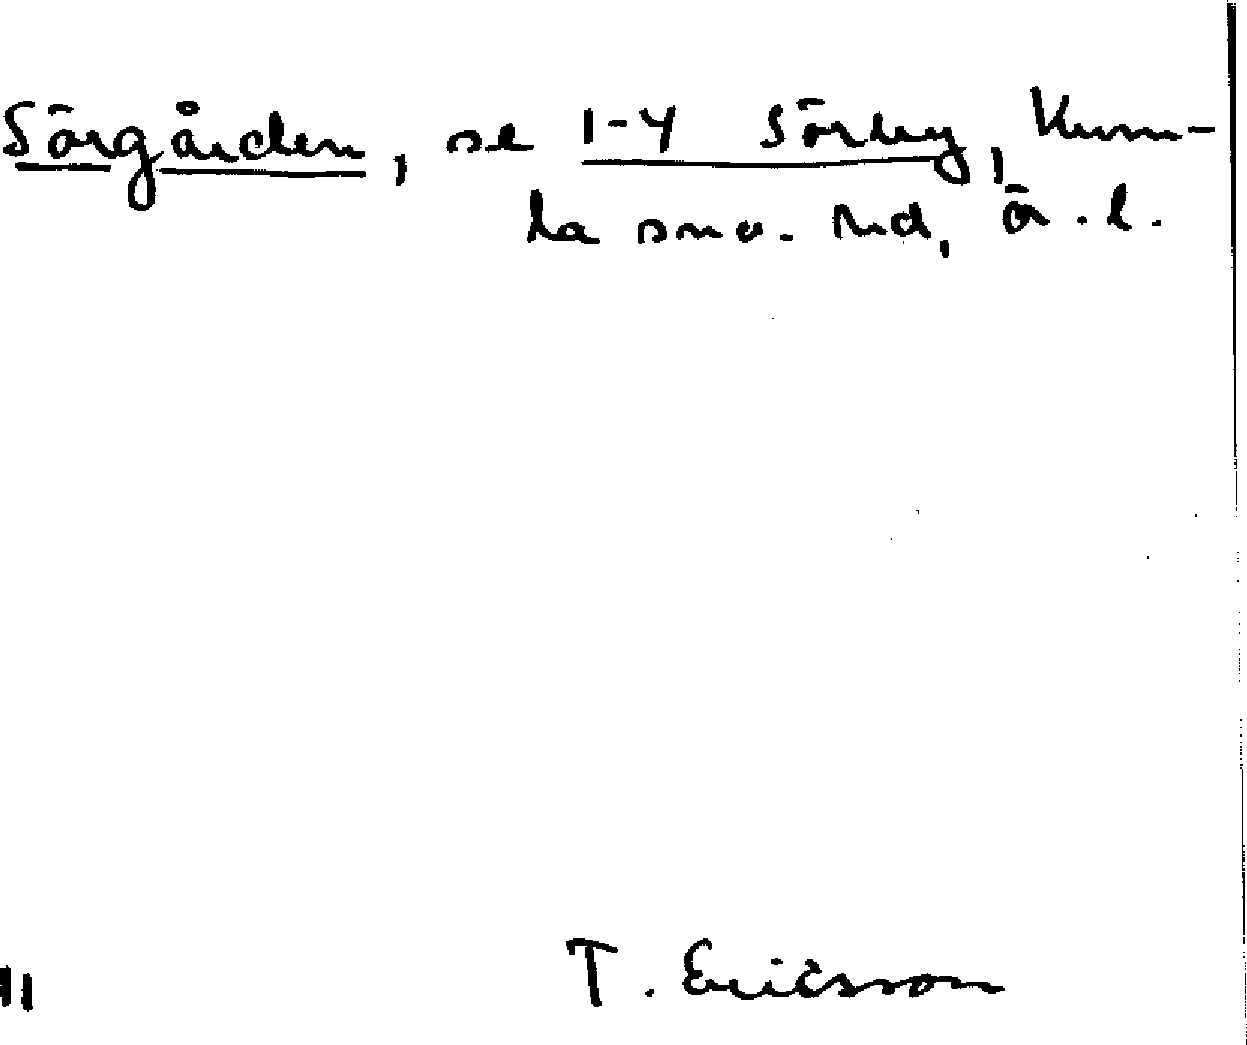 Sörgården, se 1-4 Sörby, Kum-
la sn o. hd, Ör. l.
11
T. Ericsson